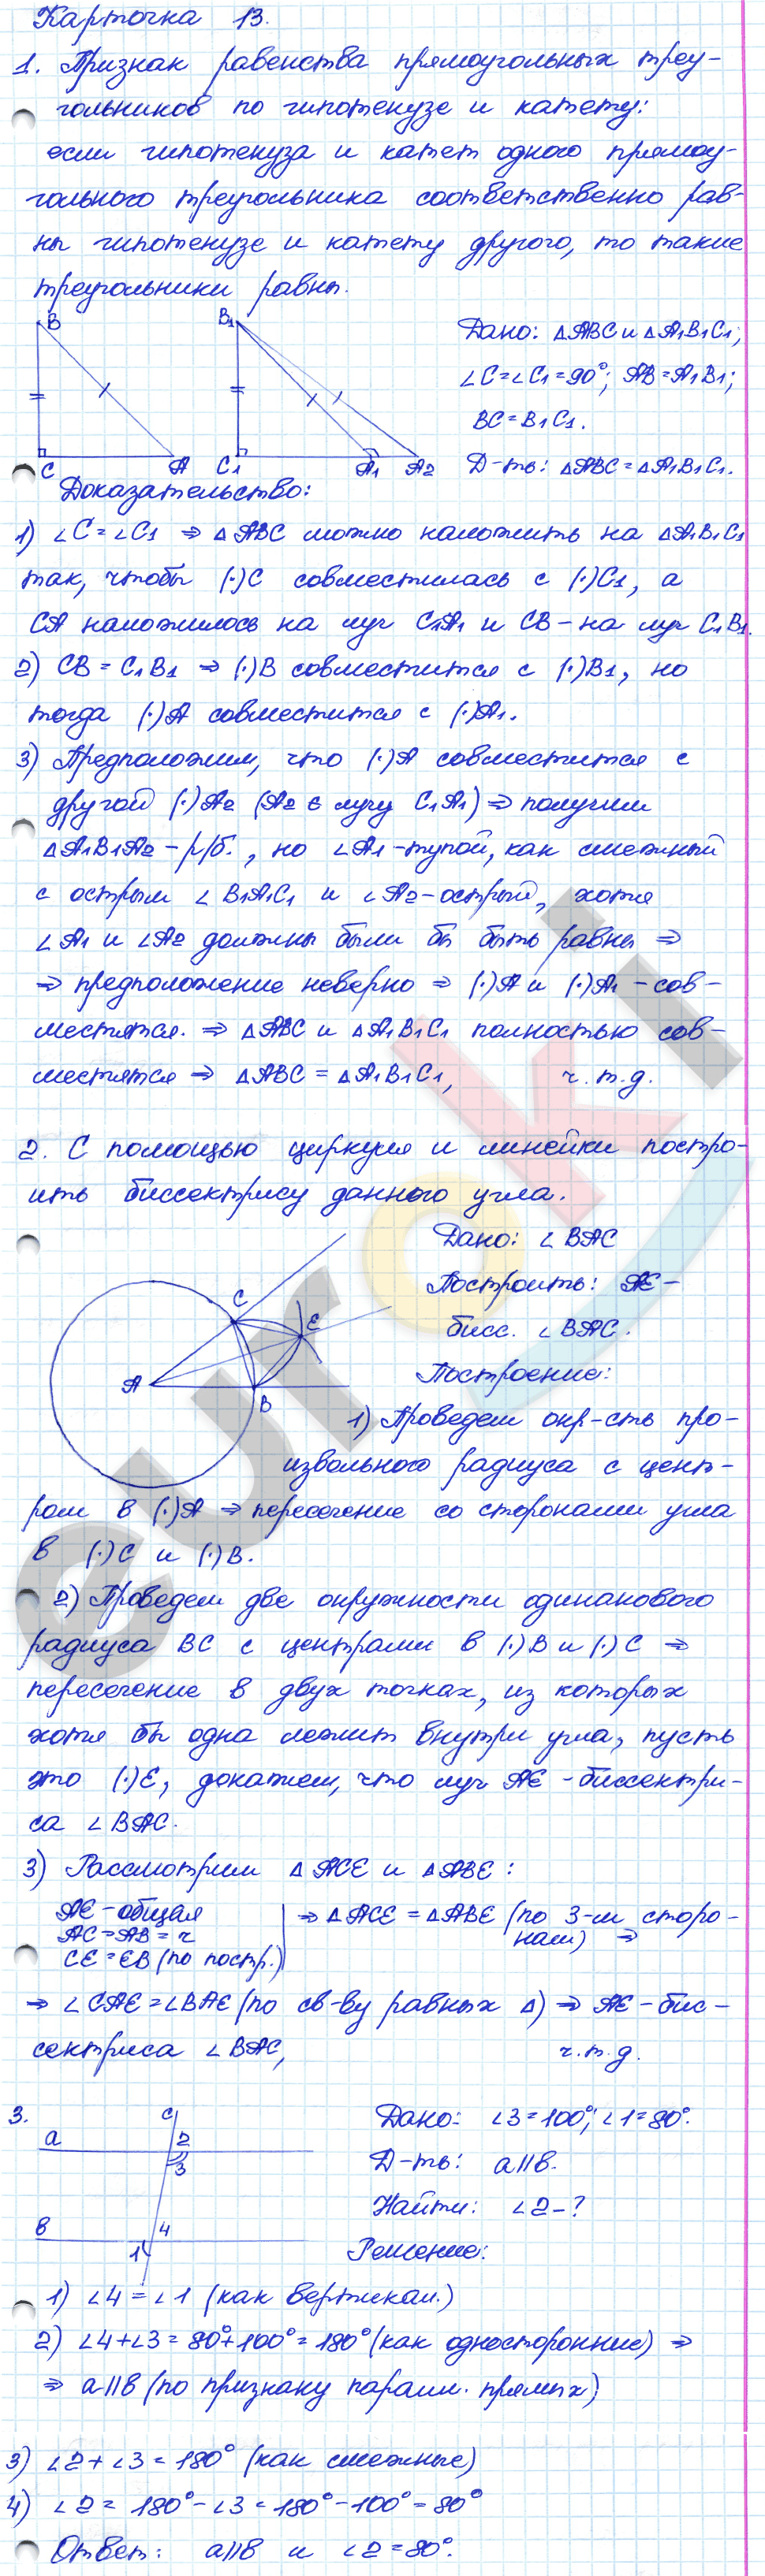 Карточка 13.
1. Признак равенства прямоугольных треу-
гольников по гипотенузе и катету:
если гипотенуза и катет одного прямоу-
гольного треугольника соответственно рав-
ны гипотенузе и катету другого, то такие
треугольники равны.
B
B1
C
A
C1
A1
A2
Дано: ΔABC и ΔA1B1C1;
∠C=∠C1=90°; AB=A1B1;
BC=B1C1.
Д-ть: ΔABC=ΔA1B1C1.
Доказательство:
1) ∠C=∠C1 ⇒ ΔABC можно наложить на ΔA1B1C1
так, чтобы (·)C совместилась с (·)C1, а
CA наложилось на луч C1A1 и CB – на луч C1B1.
2) CB = C1B1 ⇒ (·)B совместится с (·)B1, но
тогда (·)A совместится с (·)A1.
3) Предположим, что (·)A совместится с
другой (·)A2 (A2 ∈ лучу C1A1) ⇒ получим
ΔA1B1A2 – р/б., но ∠A1 – тупой, как смежный
с острым ∠B1A1C1 и ∠A2 – острый, хотя
∠A1 и ∠A2 должны были бы быть равны ⇒
⇒ предположение неверно ⇒ (·)A и (·)A1 – сов-
местятся. ⇒ ΔABC и ΔA1B1C1 полностью сов-
местятся ⇒ ΔABC = ΔA1B1C1, ч.т.д.
2. С помощью циркуля и линейки постро-
ить биссектрису данного угла.
C
E
A
B
Дано: ∠BAC
Построить: AE –
бисс. ∠BAC.
Построение:
1) Проведем окр-сть про-
извольного радиуса с цент-
ром в (·)A ⇒ пересечение со сторонами угла
в (·)C и (·)B.
2) Проведем две окружности одинакового
радиуса BC с центрами в (·)B и (·)C ⇒
пересечение в двух точках, из которых
хотя бы одна лежит внутри угла, пусть
это (·)E, докажем, что луч AE – биссектри-
са ∠BAC.
3) Рассмотрим ΔACE и ΔABE:
AE – общая
AC=AB=r
CE=EB (по постр.)
⇒ ΔACE = ΔABE (по 3-м сторо-
нам) ⇒
⇒ ∠CAE=∠BAE (по св-ву равных Δ) ⇒ AE – бис-
сектриса ∠BAC, ч.т.д.
3.
c
a
2
3
b
4
1
Дано: ∠3=100°; ∠1=80°.
Д-ть: a||b.
Найти: ∠2-?
Решение:
1) ∠4=∠1 (как вертикал.)
2) ∠4+∠3=80°+100°=180° (как односторонние) ⇒
⇒ a||b (по признаку паралл. прямых)
3) ∠2+∠3=180° (как смежные)
4) ∠2=180°-∠3=180°-100°=80°
Ответ: a||b и ∠2=80°.
euroki